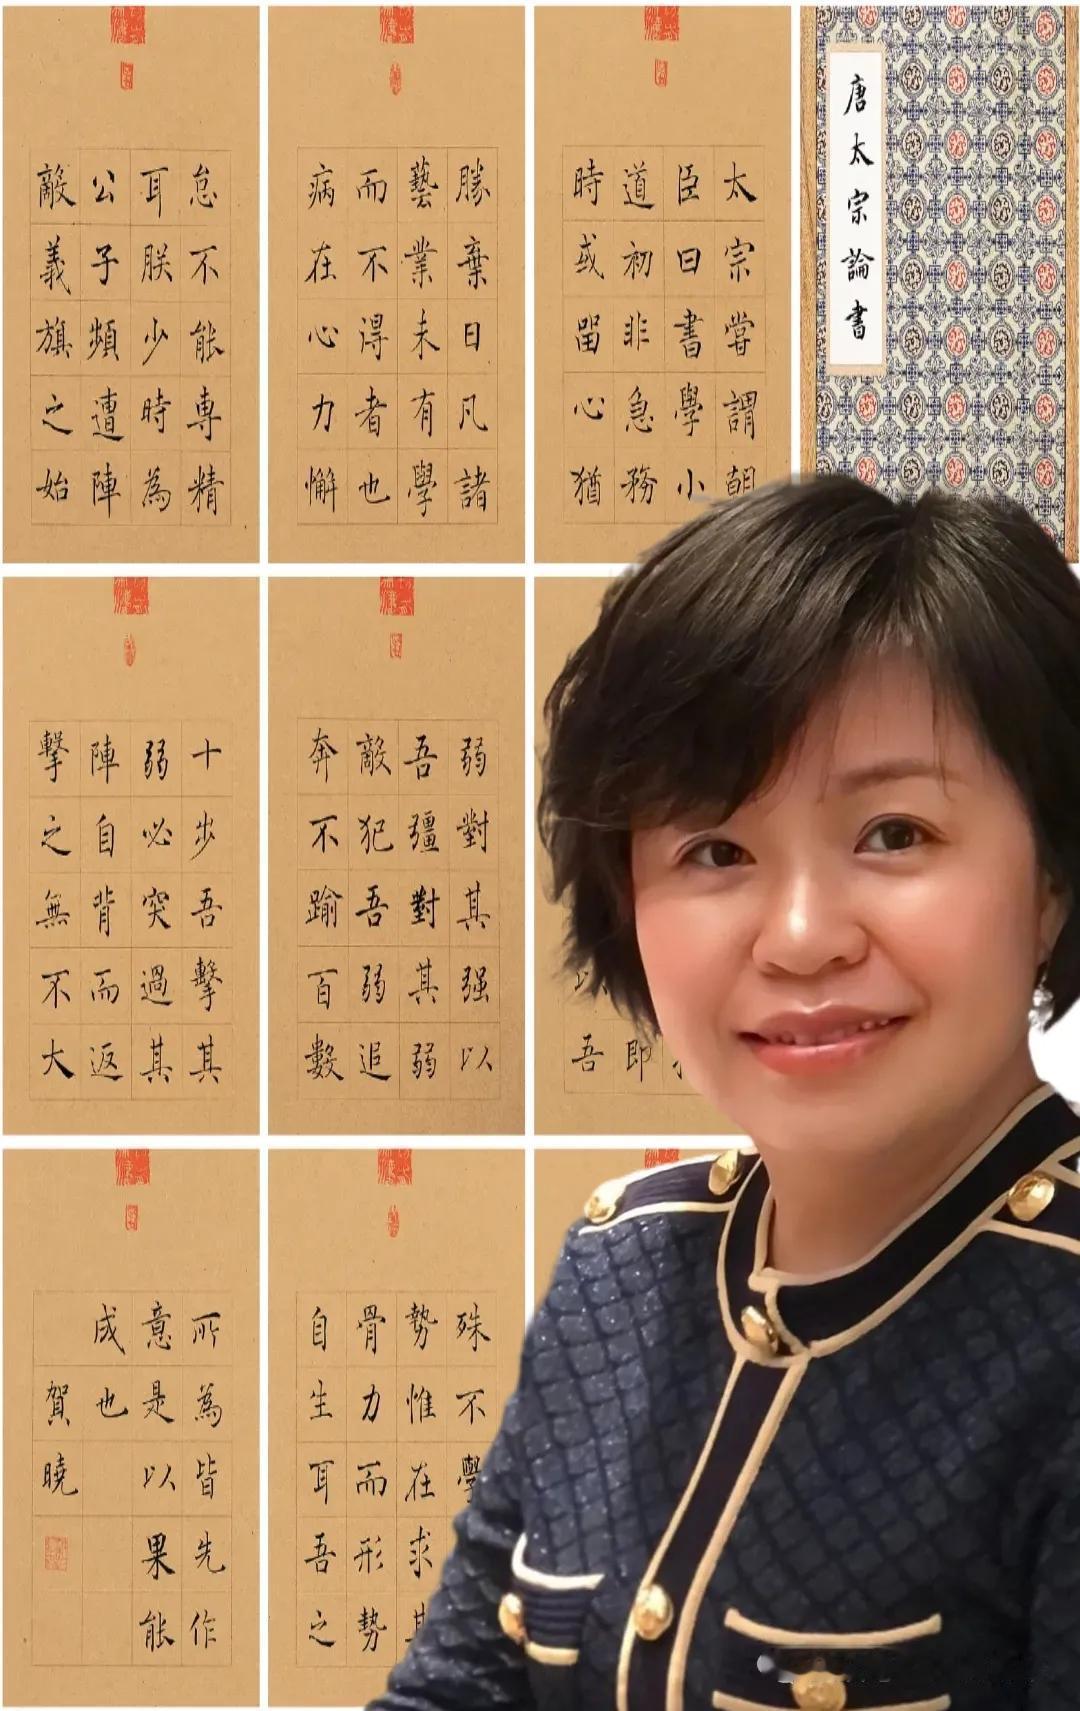 唐太宗論書
太宗嘗謂朝
臣曰書學小
道初非急務
時或留心猶
勝棄日凡諸
藝業未有學
而不得者也
病在心力懈
怠不能專精
耳朕少時為
公子頻遭陣
敵義旗之始
即
以吾
弱對其强以
吾彊對其弱
敵犯吾弱追
奔不踰百數
十步吾擊其
弱必突過其
陣自背而返
擊之無不大
殊不學
勢惟在求其
骨力而形勢
自生耳吾之
所為皆先作
意是以果能
成也
賀曉